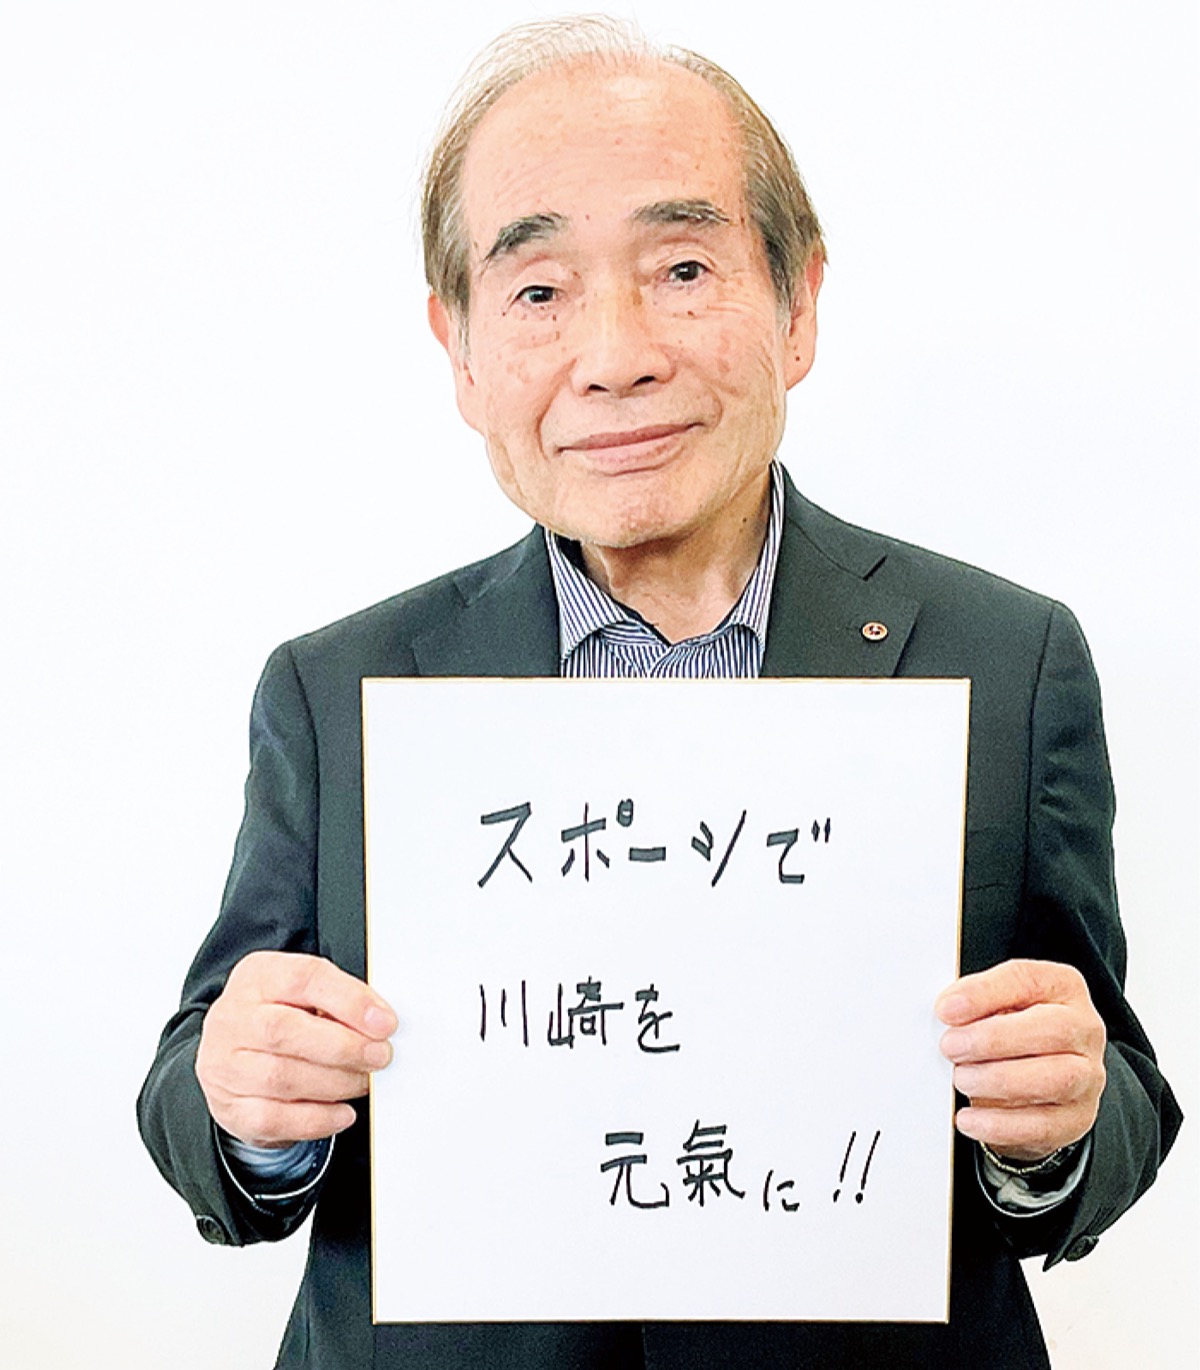 スポーツで
川崎を
元氣に!!